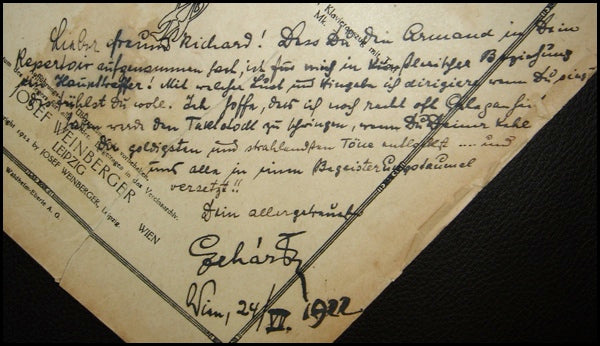 Lieber Freund Richard! Dass Du den Armand in Dein
Repertoir aufgenommen hast, ist für mich in künstlerischer Beziehung
ein Haupttreffer! Mit welcher Lust und Hingabe ich dirigiere wenn Du
fühlst Du wohl. Ich hoffe, dass ich noch recht oft Gelegenheit
haben werde den Taktstock zu schwingen, wenn Du Deiner Kehle
die goldigsten und strahlendsten Töne entlockst .... und
uns alle in einen Begeisterungstaumel
versetzt!!
Dein allergetreuester
Lehár
Wien, 24/VI. 1922
Klavierauszug mit
Mk.
JOSEF WEINBERGER
LEIPZIG
WIEN
1922 by JOSEF WEINBERGER, Leipzig.
Waldheim-Eberle A. G.